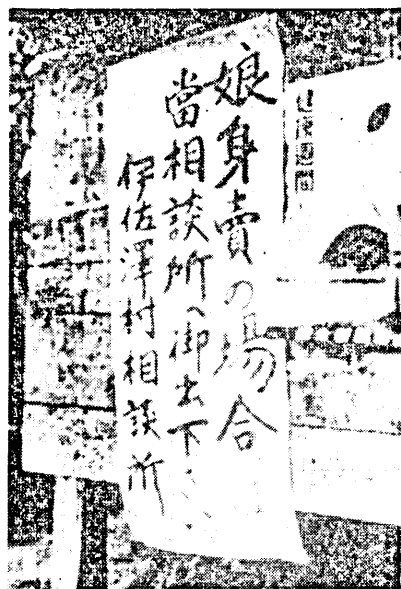 娘身賣の場合は
當相談所へ御出下さい
伊佐澤村相談所